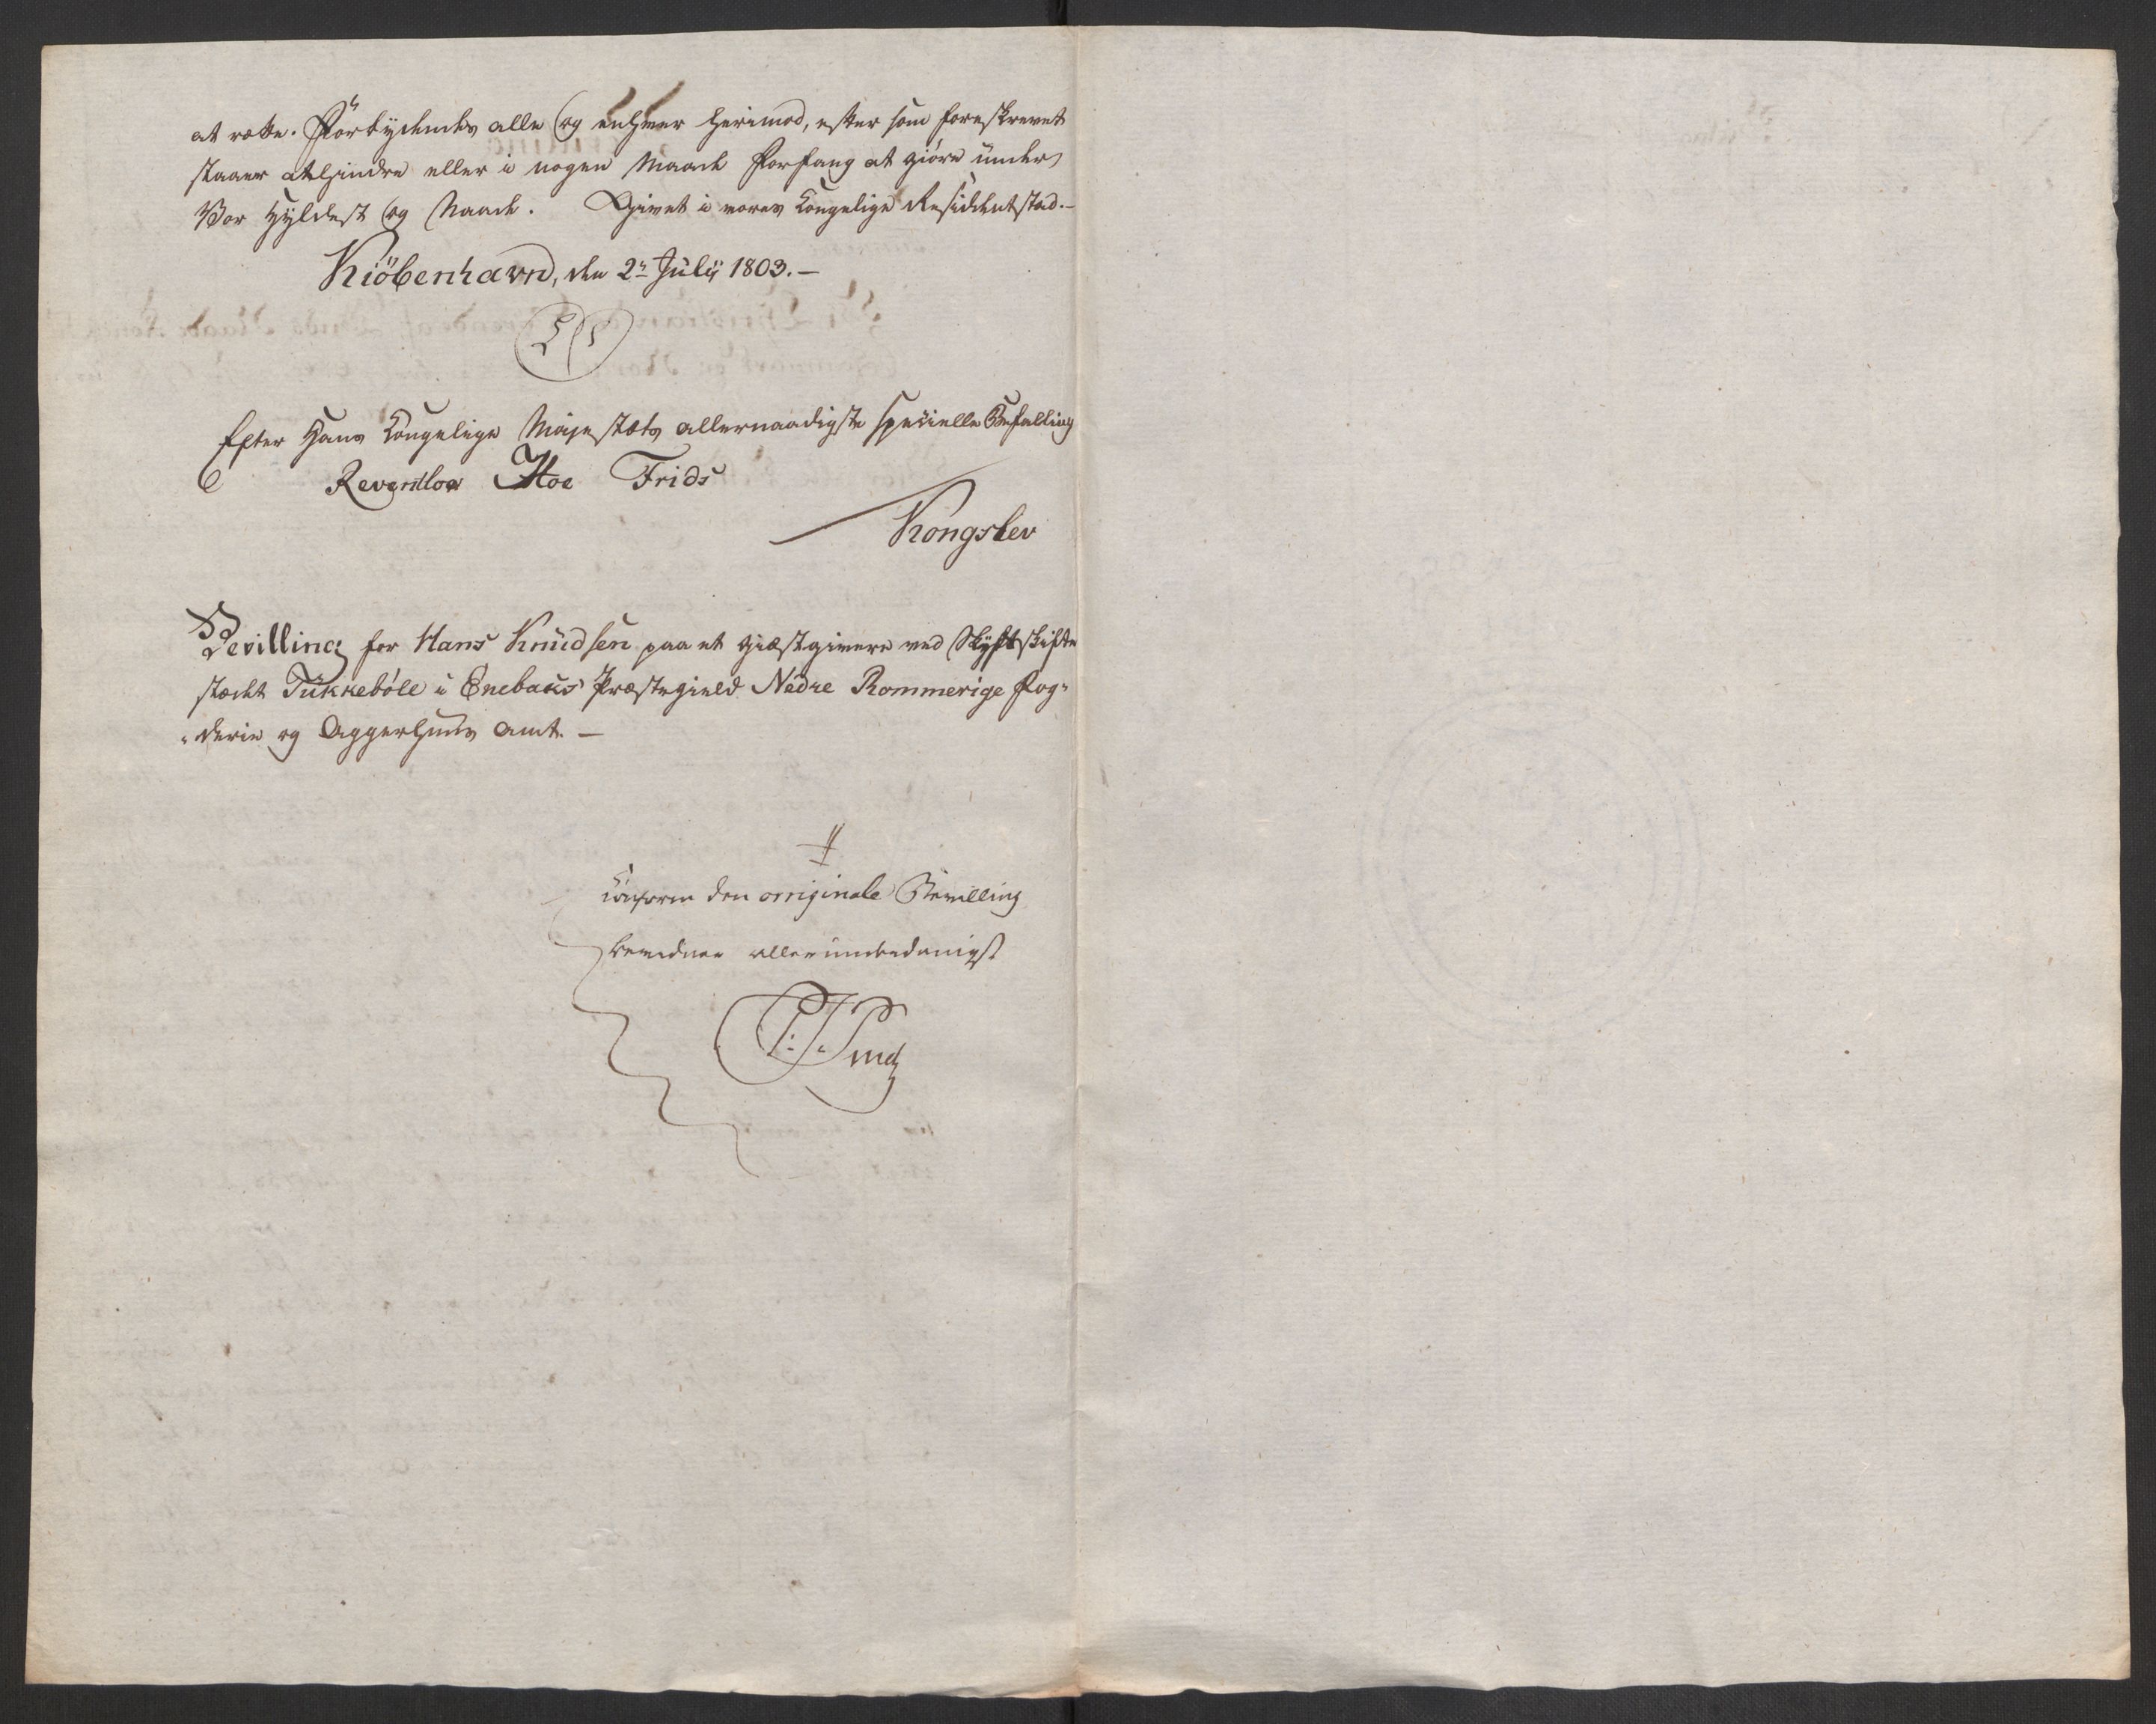 at rætte. Forbydendes alle og enhver herimod, efter som foreskrevet
staaer at hindre eller i nogen Maade Forfang at giöre under
Vor Hyldest og Naade. Givet i vores Kongelige Residentstad.-
Kiöbenhavn, den 2n July 1803.-
L S
Efter Hans Kongelige Majestæts allernaadigste specielle Befalling
Reventlow Hoe Frids
Kongslev
Bevilling for Hans Knudsen paa at giæstgivere ved Skydtskifte
stædet Tukkebøle i Enebaks Præstegield Nedre Rommerige Fog-
-derie og Aggerhuus Amt. -
Conform den orriginale Bevilling
bevidner allerunderdanigst